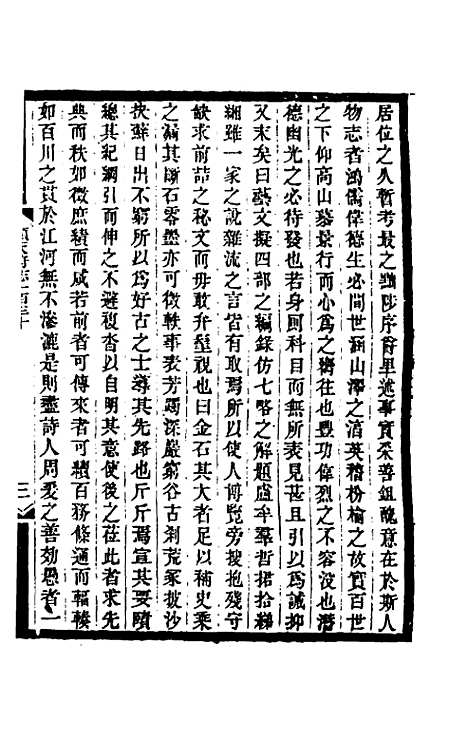 居位之人暫考最之黜陟序爵里述事實采善鉏醜意在於斯人
物志者鴻儒偉德生必間世涵山澤之清英稽枌榆之故實百世
之下仰高山慕景行而心爲之嚮往也豐功偉烈之不容沒也潛
德幽光之必待發也若身厠科目而無所表見甚且引以爲誡抑
又末矣曰藝文擬四部之編錄仿七略之解題盧牟羣哲捃拾稊
糊雖一家之說雜流之言皆有取焉所以使人博覽旁搜抱殘守
缺求前詰之秘文而毋敢弁髦視也曰金石其大者足以補史乘
之漏其斷石零墨亦可徵軼事表芳躅深巖窮谷古刹荒冢披沙
抉蘚日出不窮所以爲好古之士導其先路也斤斤焉宣其要賾
總其紀綱引而伸之不避複沓以自明其意使後之莅此者求先
典而秩如徵庶績而咸若前者可傳來者可續百務條通而輻輳
如百川之貫於江河無不滲漉是則盡詩人周爰之善効愚者一
三